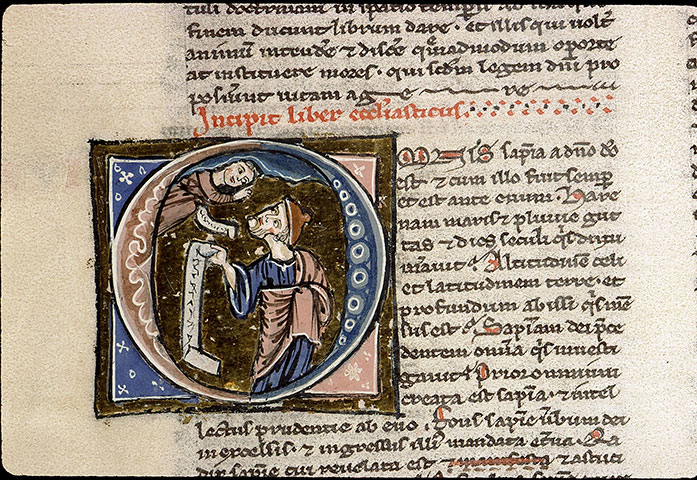 tuli doctrinam in spatio temporis ad
finem ducunt librum dare · et illis qui uolt
animum intendere & disce q̄madmodum oporte
at instituere mores · qui scdm legem dnī pro
posuerint uitam age re
Incipit liber ecclesiasticus
OMnis sapīa a dno dō
est · & cum illo fuit semp
et est ante euum · hare
nam maris & pluuie gut
tas & dies seculi q̄s dinu
merauit · Altitudinem celi
et latitudinem terre · et
profundum abissi q̄s men
sus est · Sapīam dei p̄ce
dentem omīa q̄s inuesti
gauit · Prior omnium
creata est sapīa · & intel
lectus prudentie ab euo · Fons sapīe uerbum dei
in excelsis · & ingressus illi mandata etna · Ra
dix sapīe cui reuelata est & astuti